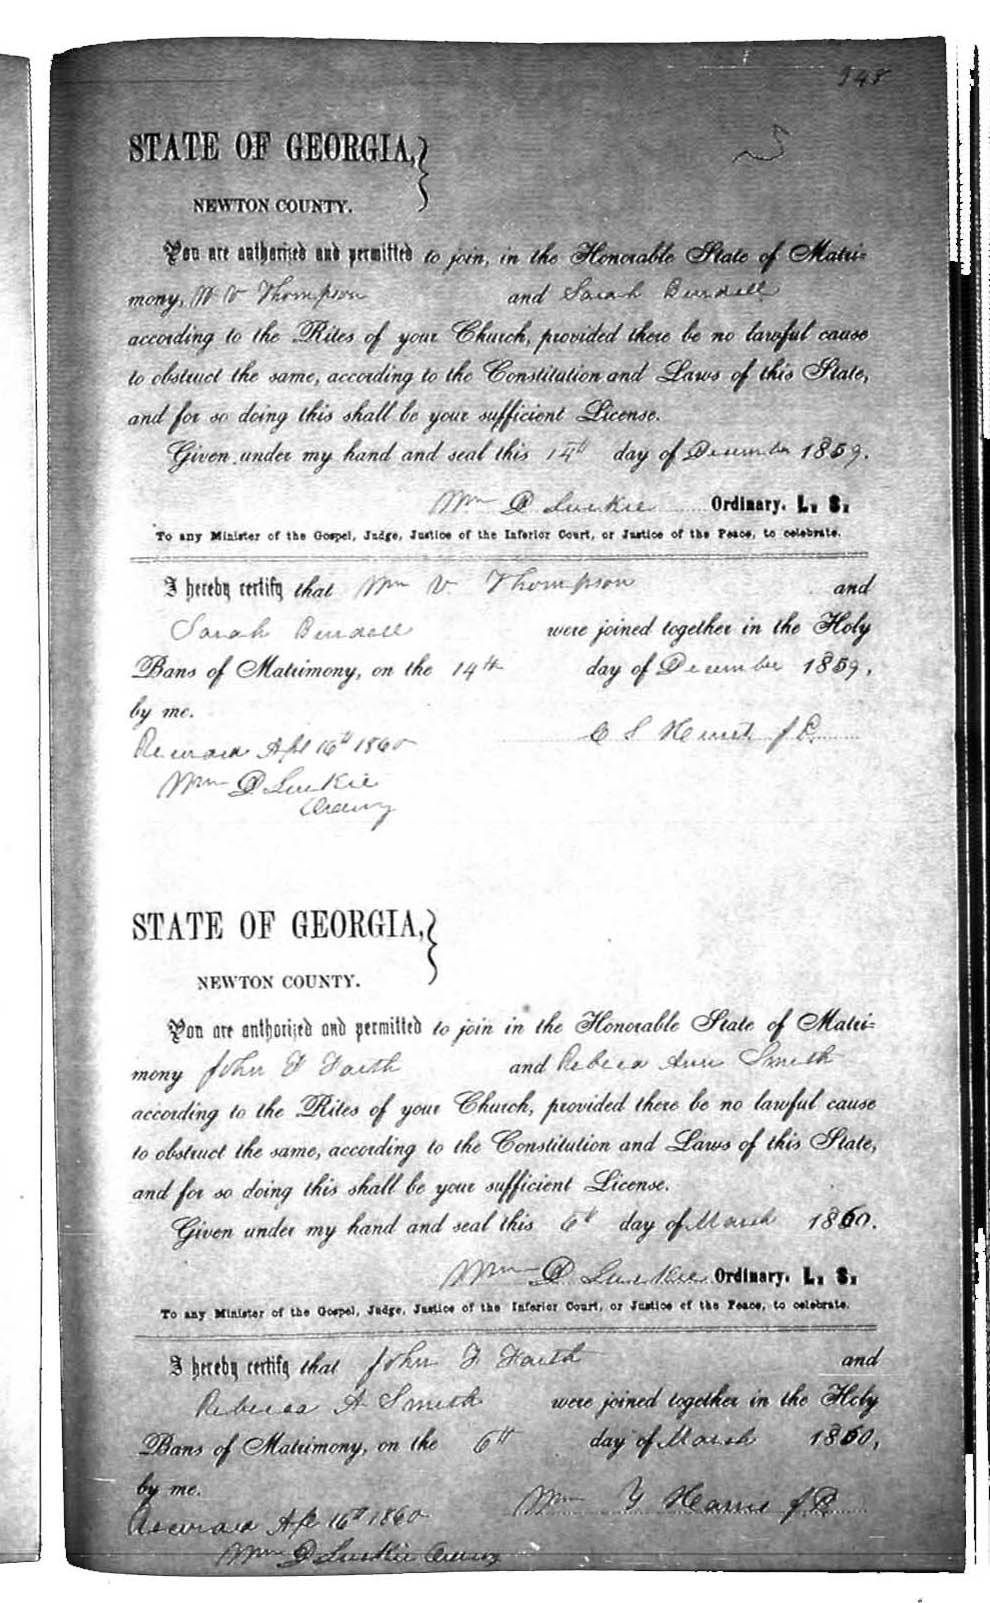 348
STATE OF GEORGIA,
NEWTON COUNTY.
You are authorized and permitted to join, in the Honorable State of Matri-
mony, W V Thompson and Sarah Burdell
according to the Rites of your Church, provided there be no lawful cause
to obstruct the same, according to the Constitution and Laws of this State,
and for so doing this shall be your sufficient License.
Given under my hand and seal this 14th day of December 1859.
Wm D Luckie Ordinary. L. S.
To any Minister of the Gospel, Judge, Justice of the Inferior Court, or Justice of the Peace, to celebrate.
I hereby certify that Wm V. Thompson and
Sarah Burdell were joined together in the Holy
Bans of Matrimony, on the 14th day of December 1859,
by me.
C S Hewit J P.
Recorded Apl 16th 1860
Wm D Luckie
Ordiny
STATE OF GEORGIA,
NEWTON COUNTY.
You are authorized and permitted to join in the Honorable State of Matri-
mony John F Faith and Rebeca Ann Smith
according to the Rites of your Church, provided there be no lawful cause
to obstruct the same, according to the Constitution and Laws of this State,
and for so doing this shall be your sufficient License.
Given under my hand and seal this 6th day of March 1860.
Wm D Luckie Ordinary. L. S.
To any Minister of the Gospel, Judge, Justice of the Inferior Court, or Justice of the Peace, to celebrate.
I hereby certify that John F Faith and
Rebecca A Smith were joined together in the Holy
Bans of Matrimony, on the 6th day of March 1860,
by me.
Wm Y Harris J P
Recorded Apl 16th 1860
Wm D Luckie Ordiny